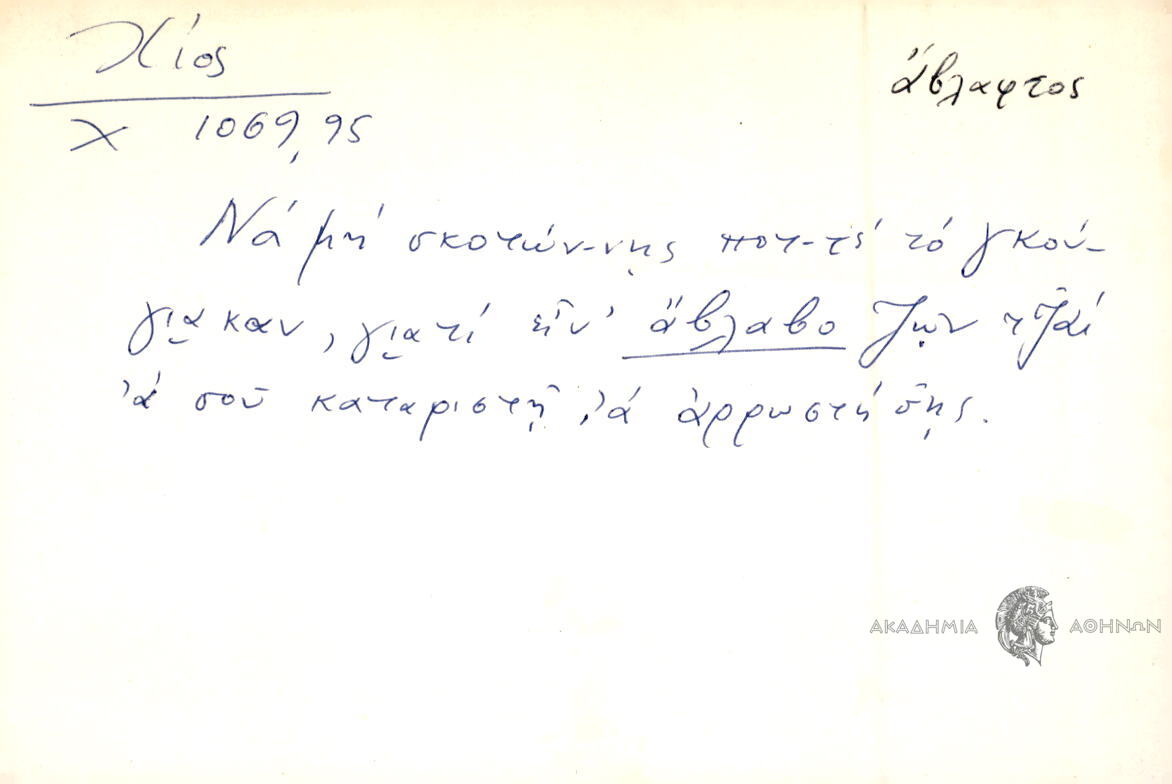 Χίος
ἄβλαφτος
Χ 1069, 95
Νά μή σκοτών-νης ποτ-τέ τό γκού-
γι̯α καν, γι̯ατί εἶν' ἄβλαβο ζῶν τζ̌αί
'ά σοῦ καταριστῇ, 'ά ἀρρωστήσῃς.
ΑΚΑΔΗΜΙΑ ΑΘΗΝΩΝ